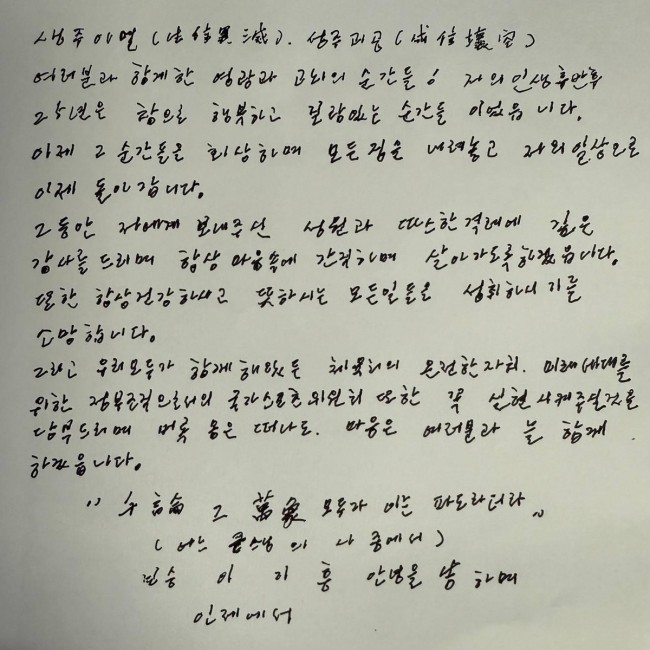 생주이멸(生住異滅). 성주괴공(成住壞空)
여러분과 함께한 영광과 고뇌의 순간들! 저의 인생 후반부
2년은 참으로 행복하고 보람있는 순간들 이었읍니다.
이제 그 순간들을 회상하며 모든짐을 내려놓고 저의 일상으로
이제 돌아갑니다.
그동안 저에게 보내주신 성원과 따스한 격려에 깊은
감사를 드리며 항상 마음속에 간직하며 살아가도록 하겠읍니다.
또한 항상 건강하시고 뜻하시는 모든일들을 성취하시기를
소망합니다.
그리고 우리모두가 함께 해왔든 체육회의 온전한 자치. 미래세대를
위한 정부조직으로서의 국가스포츠위원회 또한 꼭 실현 시켜주실것을
당부드리며 비록 몸은 떠나도. 마음은 여러분과 늘 함께
하겠읍니다.
"勿論 그 萬象 모두가 이는 파도라더라"
(어느 큰스님의 시 중에서)
이 기 흥 안녕을 하며
인제에서